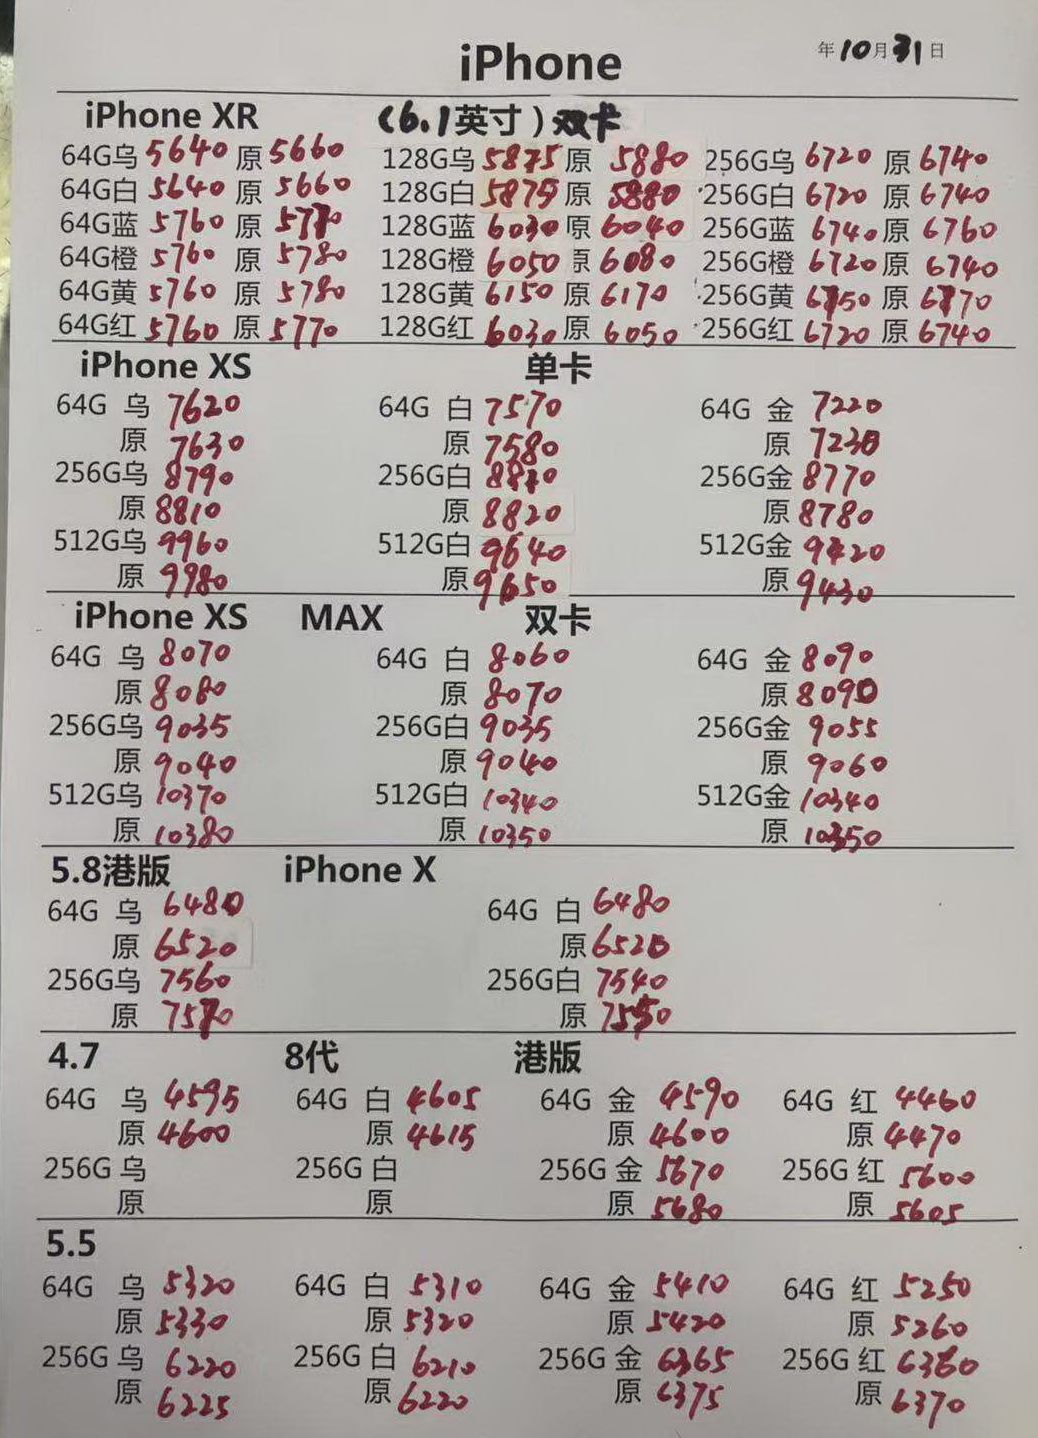 iPhone 年10月31日
iPhone XR (6.1英寸)双卡
64G乌 5640 原 5660 128G乌 5875 原 5880 256G乌 6720 原 6740
64G白 5640 原 5660 128G白 5875 原 5880 256G白 6720 原 6740
64G蓝 5760 原 5770 128G蓝 6030 原 6040 256G蓝 6740 原 6760
64G橙 5760 原 5780 128G橙 6050 原 6080 256G橙 6720 原 6740
64G黄 5760 原 5780 128G黄 6150 原 6170 256G黄 6750 原 6770
64G红 5760 原 5770 128G红 6030 原 6050 256G红 6720 原 6740
iPhone XS 单卡
64G 乌 7620 64G 白 7570 64G 金 7220
原 7630 原 7580 原 7230
256G乌 8790 256G白 8810 256G金 8770
原 8810 原 8820 原 8780
512G乌 9960 512G白 9640 512G金 9420
原 9980 原 9650 原 9430
iPhone XS MAX 双卡
64G 乌 8070 64G 白 8060 64G 金 8090
原 8080 原 8070 原 8090
256G乌 9035 256G白 9035 256G金 9055
原 9040 原 9040 原 9060
512G乌 10370 512G白 10340 512G金 10340
原 10380 原 10350 原 10350
5.8港版 iPhone X
64G 乌 6480 64G 白 6480
原 6520 原 6520
256G乌 7560 256G白 7540
原 7570 原 7550
4.7 8代 港版
64G 乌 4595 64G 白 4605 64G 金 4590 64G 红 4460
原 4600 原 4615 原 4600 原 4470
256G 乌 256G 白 256G 金 5670 256G 红 5600
原 原 原 5680 原 5605
5.5
64G 乌 5320 64G 白 5310 64G 金 5410 64G 红 5250
原 5330 原 5320 原 5420 原 5260
256G 乌 6220 256G 白 6210 256G 金 6365 256G 红 6360
原 6225 原 6220 原 6375 原 6370